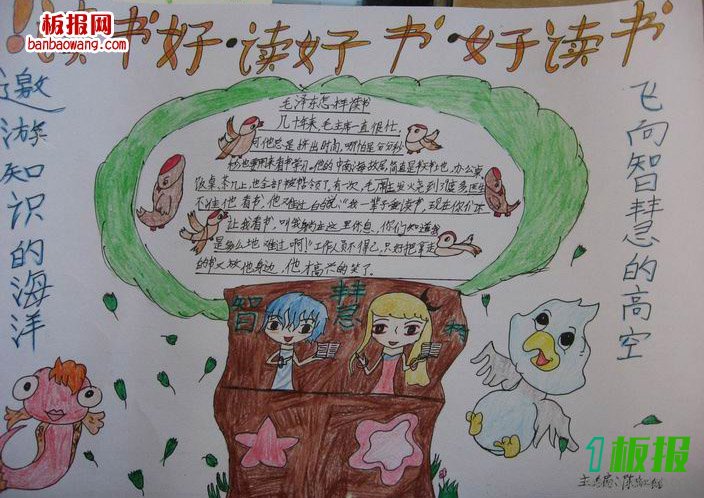 板报网
banbaowang.com
!读书好·读好书·好读书
遨游知识的海洋
飞向智慧的高空
毛泽东怎样读书
几十年来,毛主席一直很忙,
可他总是挤出时间,哪怕是分分秒秒
也要用来看书学习。他的中南海故居,简直是书天书地,办公桌
饭桌、茶几上,也全部被书占领了。有次,毛主席
不准他看书,他难过
让我看书,叫我躺在这里休息,你们知道我
是多么地难过啊!"工作人员不得已,只好把拿走
的书又放他身边,他才高兴的笑了。
智慧树
1板报
主编:陈